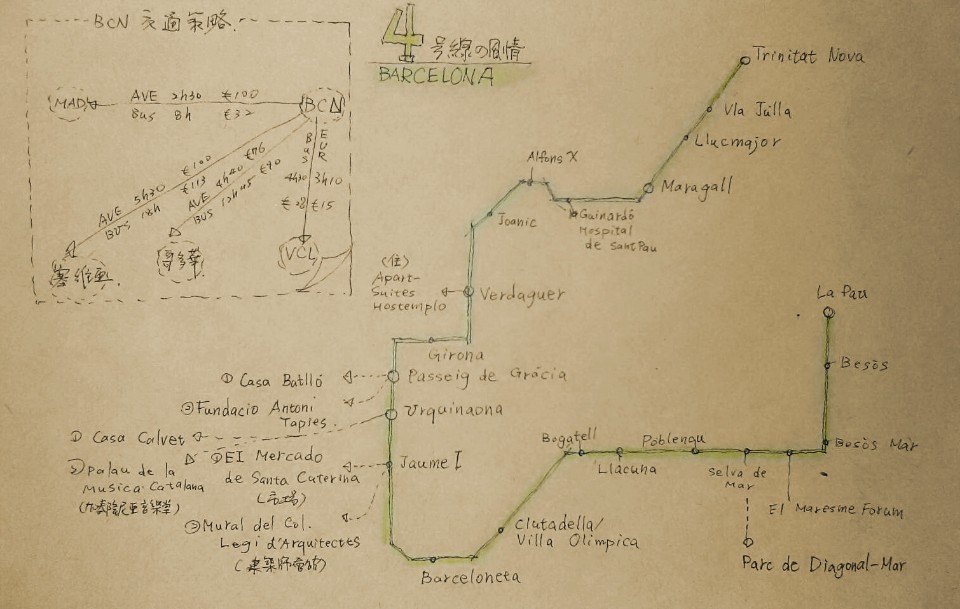 BCN 交通策略
MAD
AVE 2h30 €100
Bus 8h €32
BCN
AVE 5h30 €100
BUS 18h €113
AVE 4h40 €76
BUS 12h45 €90
BUS
4h10
€28
EUR
3h10
€15
塞維亞
哥多華
VCL
4号線の風情
BARCELONA
Trinitat Nova
Vla Júlla
Llucmajor
Maragall
Alfons X
Guinardó
Hospital
de Sant Pau
Joanic
(住)
Apart-
Suites
Hostemplo
Verdaguer
Girona
① Casa Batlló
Passeig de Grácia
②Fundacio Antoni
Taples.
Urquinaona
① Casa Calvet
②Palau de la
Musica Catalana
①El Mercado
de Santa Caterina
(市場)
Jaume I
②Mural del Col.
Legi d'Arquitectes
Barceloneta
Clutadella/
Villa Olímpica
Bogatell
Llacuna
Poblengu
Selva de
Mar
El Maresme Forum
Parc de Diagonal-Mar
Besòs Màr
Besòs
La Pau